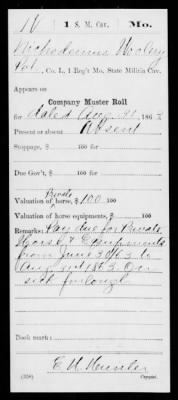 W 1 S. M. Cav. Mo.
Nichodemus Woolery
Pvt., Co. I, 1 Reg't Mo. State Militia Cav.
Appears on
Company Muster Roll
for dated Aug. 31, 1863
Present or absent Absent
Stoppage, $ 100 for
Due Gov't, $ 100 for
Private
Valuation of horse, $ 100 100
Valuation of horse equipments, $ 100
Remarks: Pay due for Private
Horse & Equipments
from June 30/63 to
Aug 31st 1863. On
sick furlough
Book mark:
E. H. Hunter
(358) Copyist.